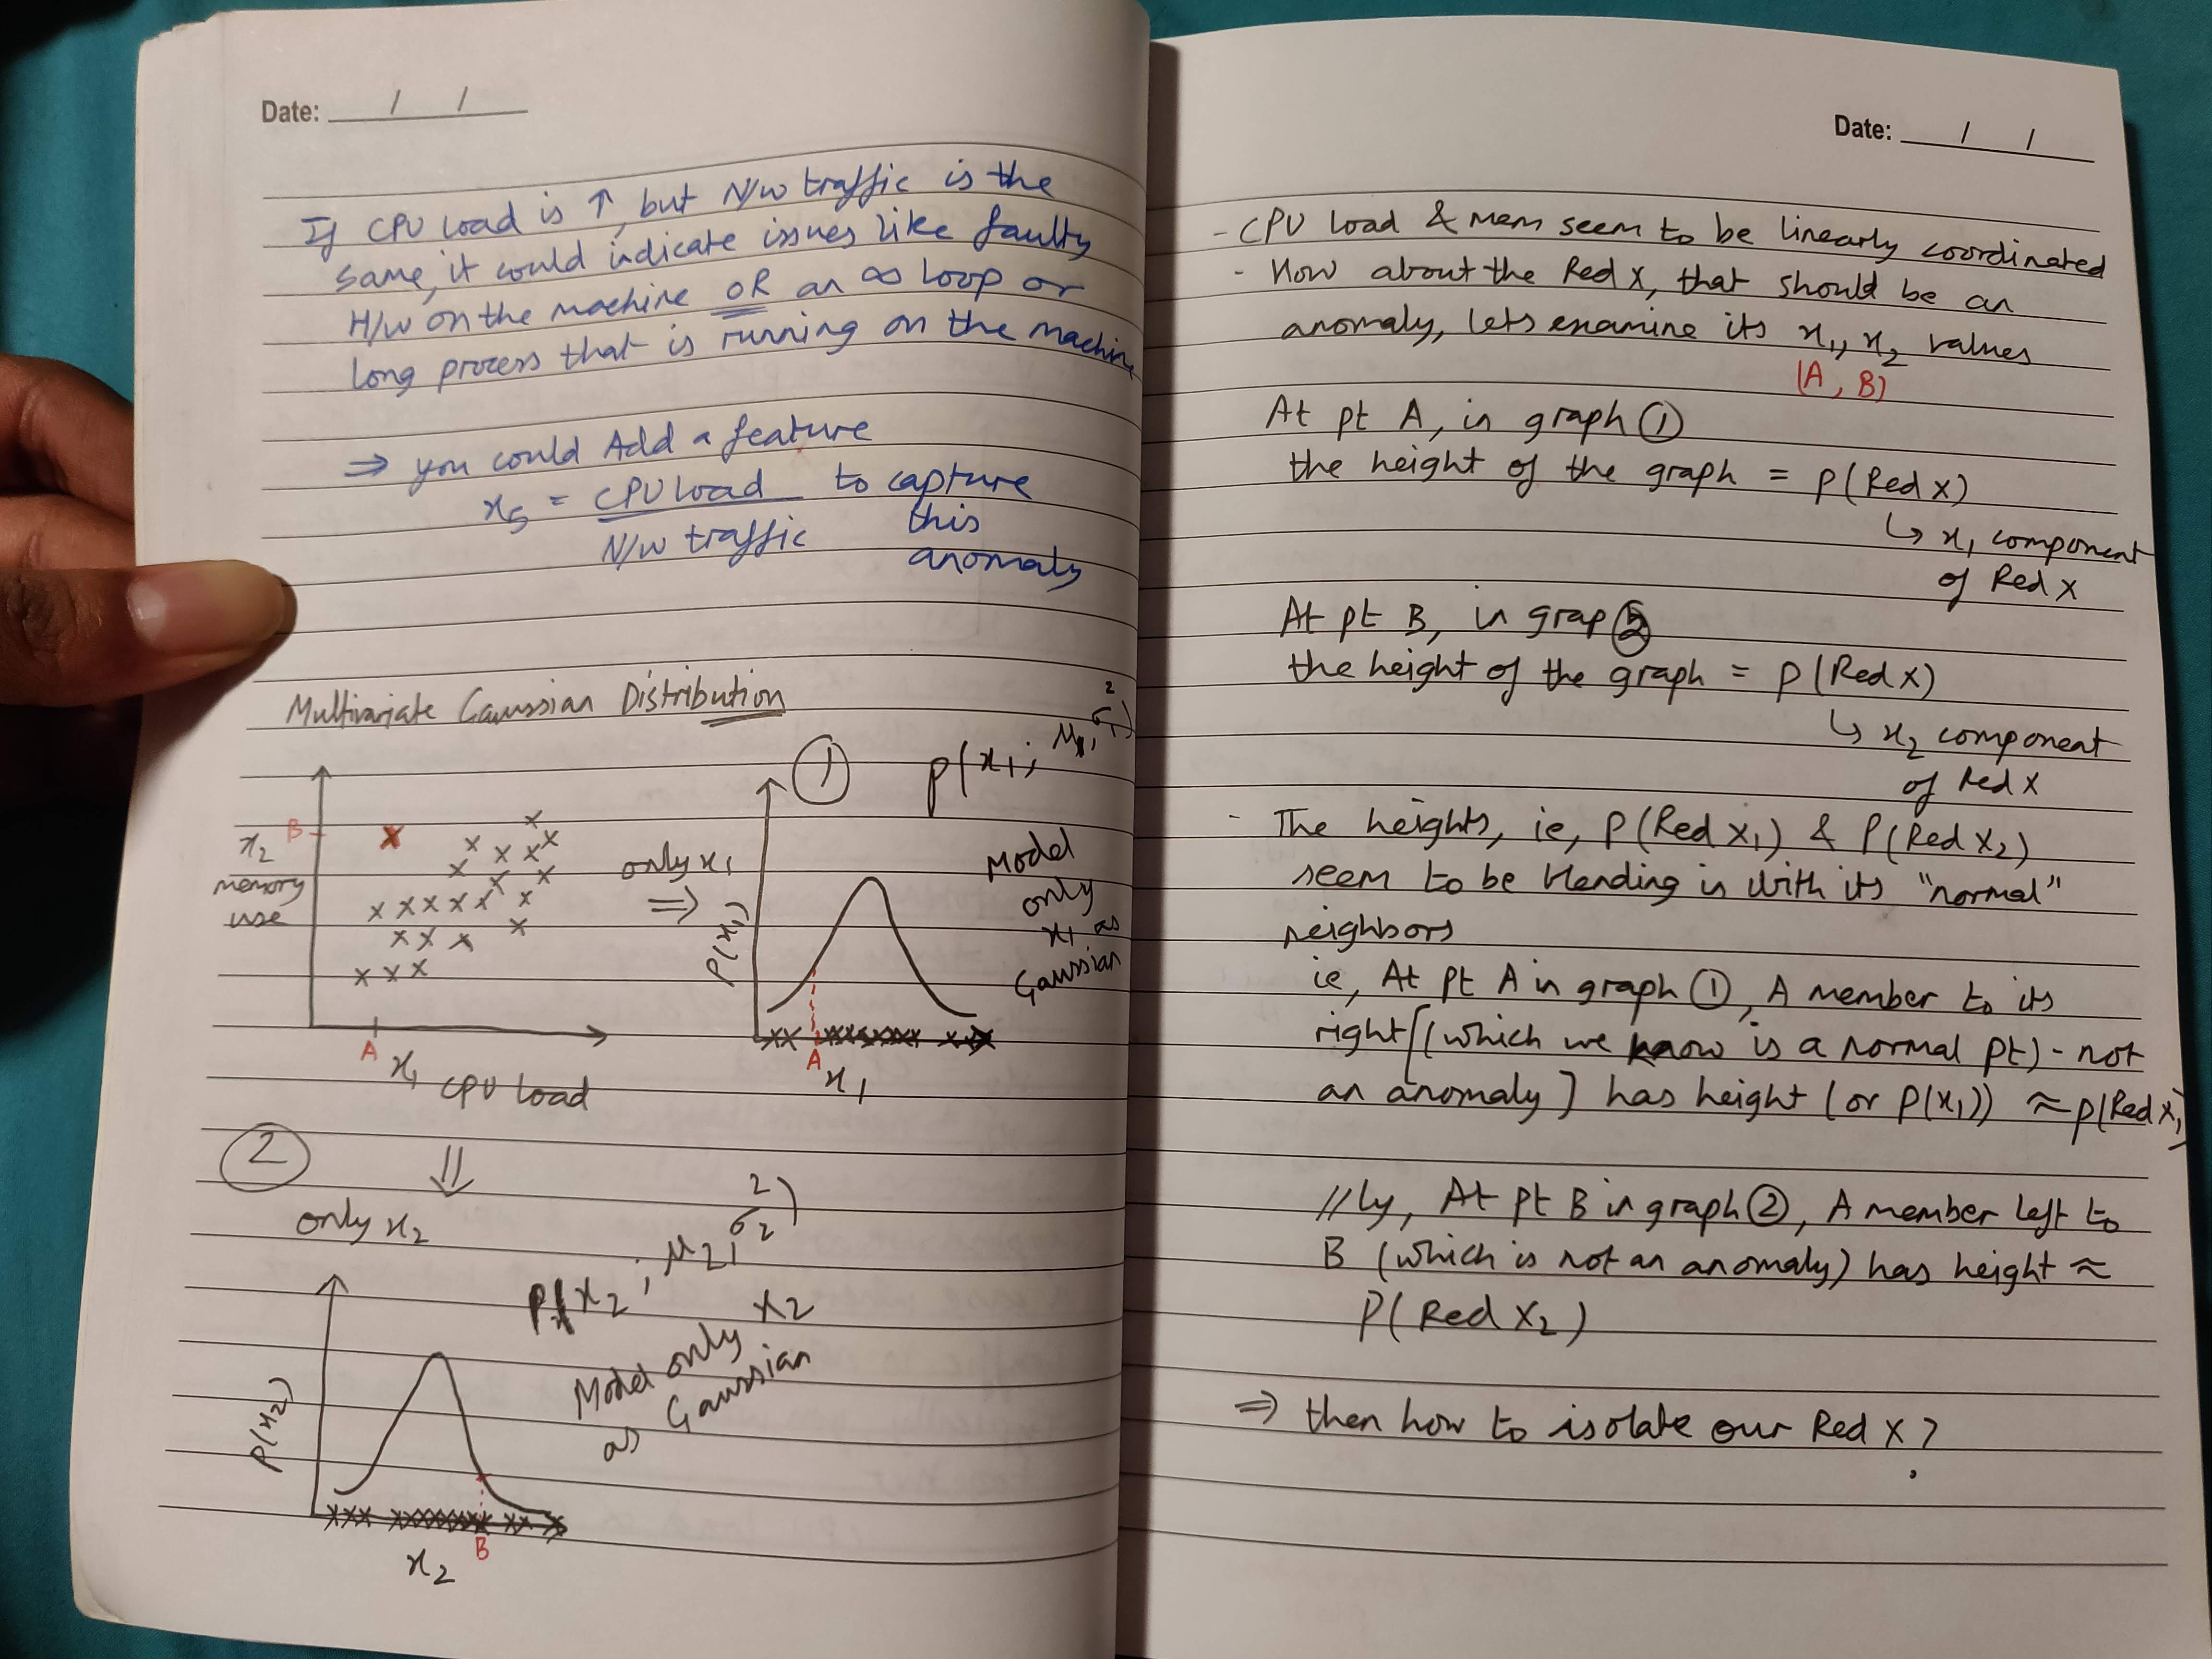 Date: / /
If CPU load is ↑, but N/w traffic is the
same, it could indicate issues like faulty
H/w on the machine OR an ∞ loop or
long process that is running on the machine
⇒ you could Add a feature
x5 = CPU load / N/w traffic to capture
this
anomaly
Multivariate Gaussian Distribution
①
p(x1; μ1, σ1²)
B
x2
memory
use
only x1
⇒
P(x1)
Model
only
x1 as
Gaussian
A
x1 CPU load
A
x1
②
⇓
only x2
p(x2; μ2, σ2²)
Model only x2
as Gaussian
P(x2)
B
x2
Date: / /
- CPU load & mem seem to be linearly coordinated
- How about the Red X, that should be an
anomaly, lets examine its x1, x2 values
(A, B)
At pt A, in graph ①
the height of the graph = p(Red X)
↳ x1 component
of Red X
At pt B, in grap ②
the height of the graph = p(Red X)
↳ x2 component
of Red X
- The heights, ie, P(Red X1) & P(Red X2)
seem to be blending in with its "normal"
neighbors
ie, At pt A in graph ①, A member to its
right [(which we know is a normal pt) - not
an anomaly] has height (or P(x1)) ≈ p(Red X1)
//ly, At pt B in graph ②, A member left to
B (which is not an anomaly) has height ≈
P(Red X2)
⇒ then how to isolate our Red X?